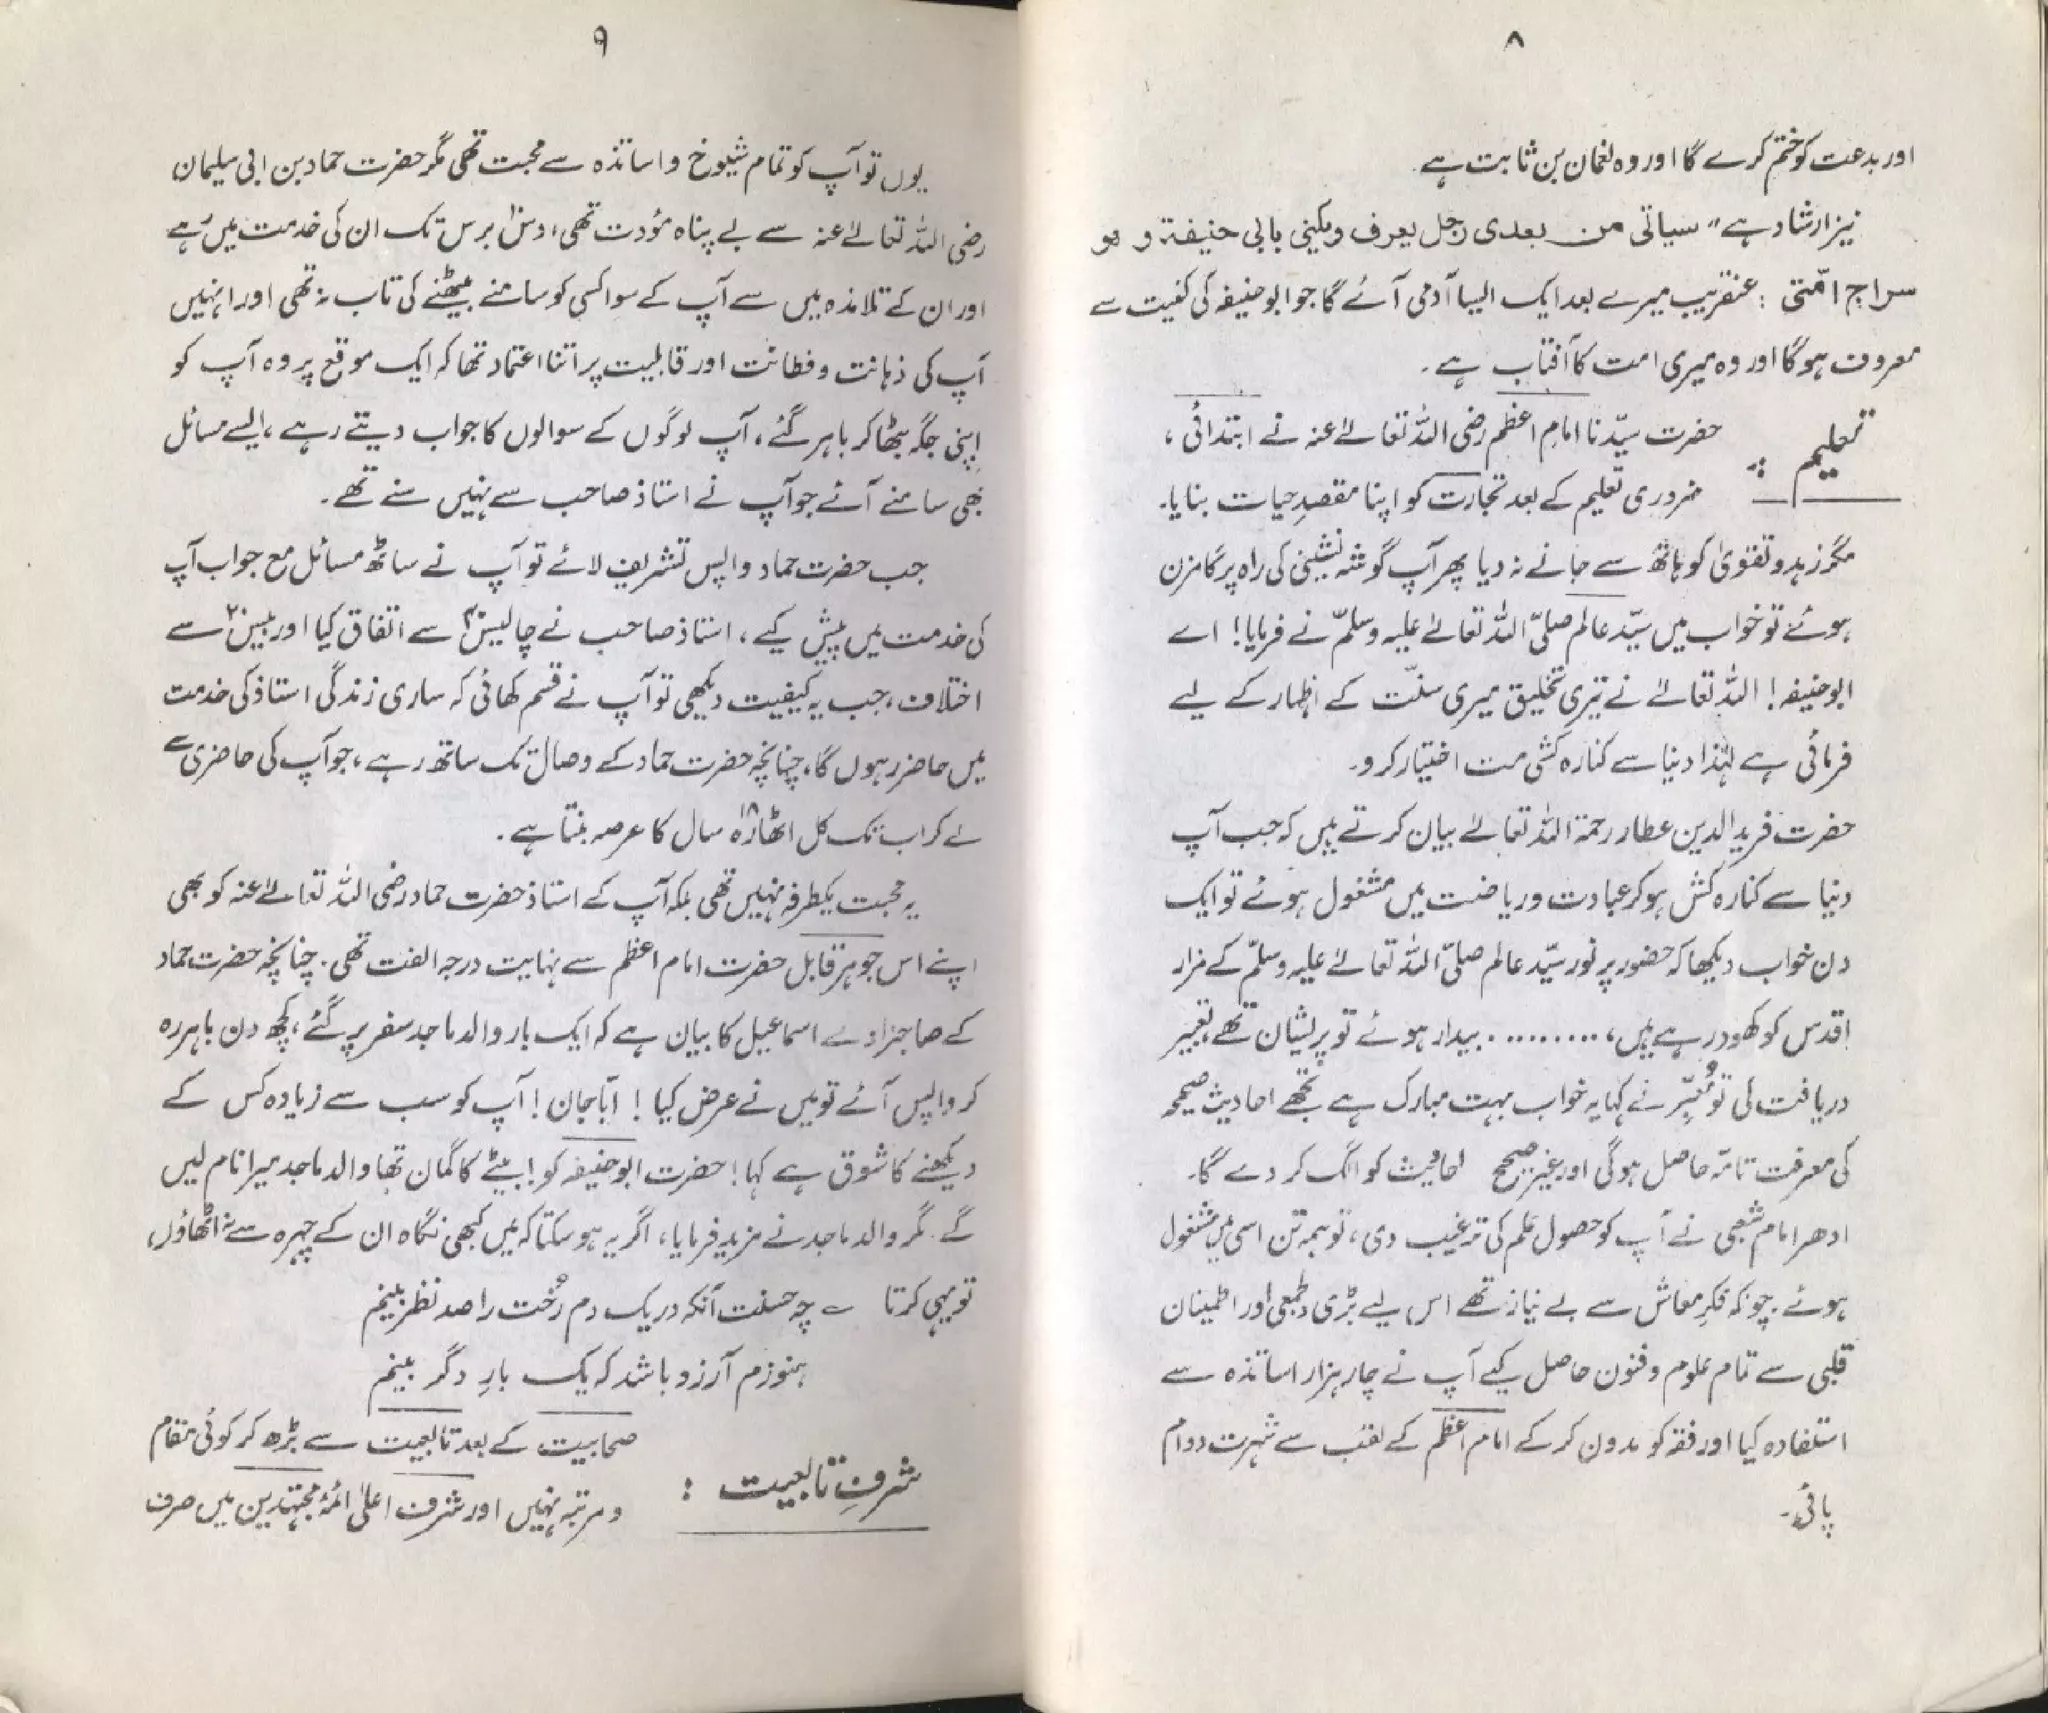 ۸
اور بدعت کو ختم کرے گا اور وہ نعمان بن ثابت ہے۔
نیز ارشاد ہے " سیاتی من بعدی رجل یعرف ویکنی بابی حنیفۃ و ھو
سراج امّتی : عنقریب میرے بعد ایک ایسا آدمی آئے گا جو ابو حنیفہ کی کنیت سے
معروف ہوگا اور وہ میری امت کا آفتاب ہے۔
تعلیم :۔
حضرت سیّدنا امام اعظم رضی اللہ تعالےٰ عنہ نے ابتدائی ،
ضروری تعلیم کے بعد تجارت کو اپنا مقصدِ حیات بنایا۔
مگر زہد و تقویٰ کو ہاتھ سے جانے نہ دیا پھر آپ گوشہ نشینی کی راہ پر گامزن
ہوئے تو خواب میں سیّد عالم صلّی اللہ تعالےٰ علیہ وسلّم نے فرمایا! اے
ابو حنیفہ! اللہ تعالےٰ نے تیری تخلیق میری سنّت کے اظہار کے لیے
فرمائی ہے لہٰذا دنیا سے کنارہ کشی مت اختیار کرو۔
حضرت فرید الدین عطار رحمۃ اللہ تعالےٰ بیان کرتے ہیں کہ جب آپ
دنیا سے کنارہ کش ہو کر عبادت و ریاضت میں مشغول ہوئے تو ایک
دن خواب دیکھا کہ حضور پر نور سیّد عالم صلّی اللہ تعالےٰ علیہ وسلّم کے مزار
اقدس کو کھود رہے ہیں، .......... بیدار ہوئے تو پریشان تھے، تعبیر
دریافت کی تو مُعبّر نے کہا یہ خواب بہت مبارک ہے تجھے احادیث صحیحہ
کی معرفت تامّہ حاصل ہوگی اور غیر صحیح احادیث کو الگ کر دے گا۔
ادھر امام شعبی نے آپ کو حصول علم کی ترغیب دی، تو ہمہ تن اسی میں مشغول
ہوئے۔ چونکہ فکرِ معاش سے بے نیاز تھے اس لیے بڑی دلجمعی اور اطمینان
قلبی سے تمام علوم و فنون حاصل کیے آپ نے چار ہزار اساتذہ سے
استفادہ کیا اور فقہ کو مدون کر کے امام اعظم کے لقب سے شہرت دوام
پائی۔
۹
یوں تو آپ کو تمام شیوخ و اساتذہ سے محبت تھی مگر حضرت حماد بن ابی سلیمان
رضی اللہ تعالےٰ عنہ سے بے پناہ مؤدت تھی، دس برس تک ان کی خدمت میں رہے
اور ان کے تلامذہ میں سے آپ کے سوا کسی کو سامنے بیٹھنے کی تاب نہ تھی اور انہیں
آپ کی ذہانت و فطانت اور قابلیت پر اتنا اعتماد تھا کہ ایک موقع پر وہ آپ کو
اپنی جگہ بٹھا کر باہر گئے، آپ لوگوں کے سوالوں کا جواب دیتے رہے، ایسے مسائل
بھی سامنے آئے جو آپ نے استاذ صاحب سے نہیں سنے تھے۔
جب حضرت حماد واپس تشریف لائے تو آپ نے ساٹھ مسائل مع جواب آپ
کی خدمت میں پیش کیے، استاذ صاحب نے چالیس سے اتفاق کیا اور بیس سے
اختلاف، جب یہ کیفیت دیکھی تو آپ نے قسم کھائی کہ ساری زندگی استاذ کی خدمت
میں حاضر رہوں گا، چنانچہ حضرت حماد کے وصال تک ساتھ رہے، جو آپ کی حاضری سے
لے کر اب تک کل اٹھارہ ۱۸ سال کا عرصہ بنتا ہے۔
یہ محبت یکطرفہ نہیں تھی بلکہ آپ کے استاذ حضرت حماد رضی اللہ تعالےٰ عنہ کو بھی
اپنے اس جوہر قابل حضرت امام اعظم سے نہایت درجہ الفت تھی۔ چنانچہ حضرت حماد
کے صاحبزادے اسماعیل کا بیان ہے کہ ایک بار والد ماجد سفر پر گئے، کچھ دن باہر رہ
کر واپس آئے تو میں نے عرض کیا! ابّا جان! آپ کو سب سے زیادہ کس کے
دیکھنے کا شوق ہے کہا! حضرت ابو حنیفہ کو! بیٹے کا گمان تھا والد ماجد میرا نام لیں
گے۔ مگر والد ماجد نے مزید فرمایا، اگر یہ ہو سکتا کہ میں کبھی نگاہ ان کے چہرہ سے نہ اٹھاؤں،
تو یہی کرتا ؎ چہ حسنت آنکہ در یک دم رُخت را صد نظر بینم
ہنوزم آرزو باشد کہ یک بارِ دگر بینم
شرفِ تابعیت :
صحابیت کے بعد تابعیت سے بڑھ کر کوئی مقام
و مرتبہ نہیں اور شرف اعلیٰ ائمہ مجتہدین میں صرف